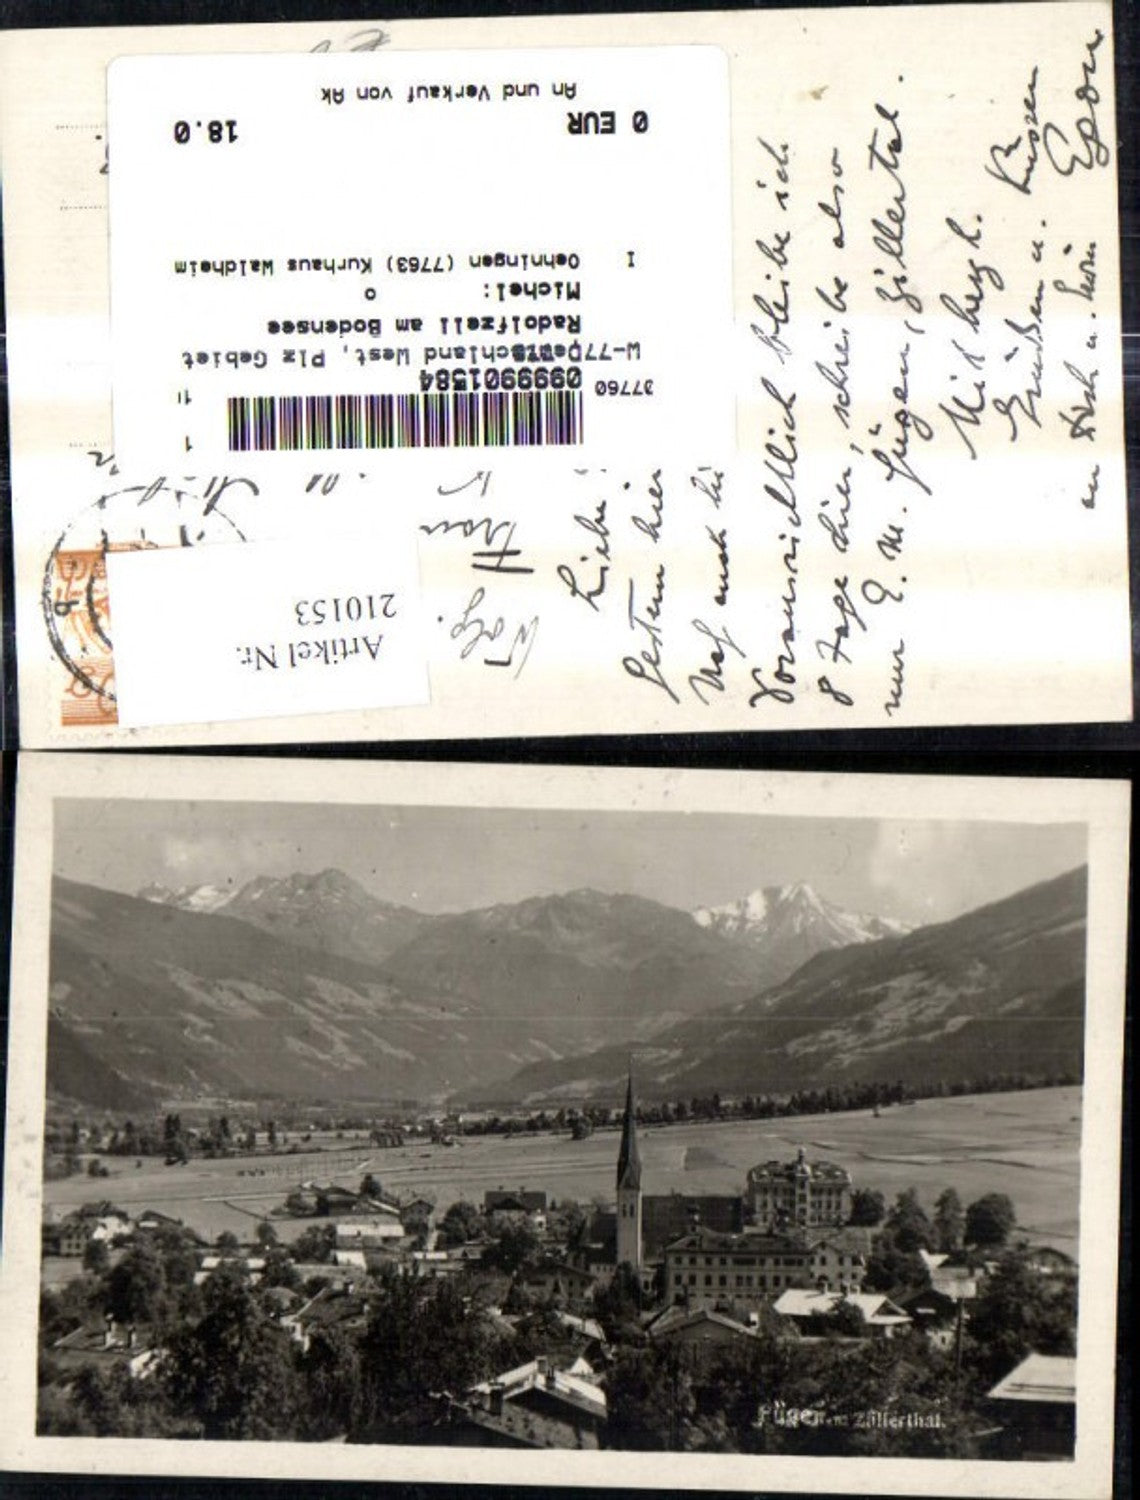 An und Verkauf von Ak
0 EUR 18.0
I Oehningen (7763) Kurhaus Waldheim
Michel: o
Radolfzell am Bodensee
W-77Deutschland West, Plz Gebiet
37760 0999901584
1
Artikel Nr.
210153
Wolg.
Frau
Liebe
Gestern hier
noch
Voraussichtlich bleibe ich
8 Tage hier, schreibe also
nur E. M. Fügen, Zillertal.
Mit herzl.
Grüßen u. Küssen
an Dich u.
Fügen im Zillerthal.